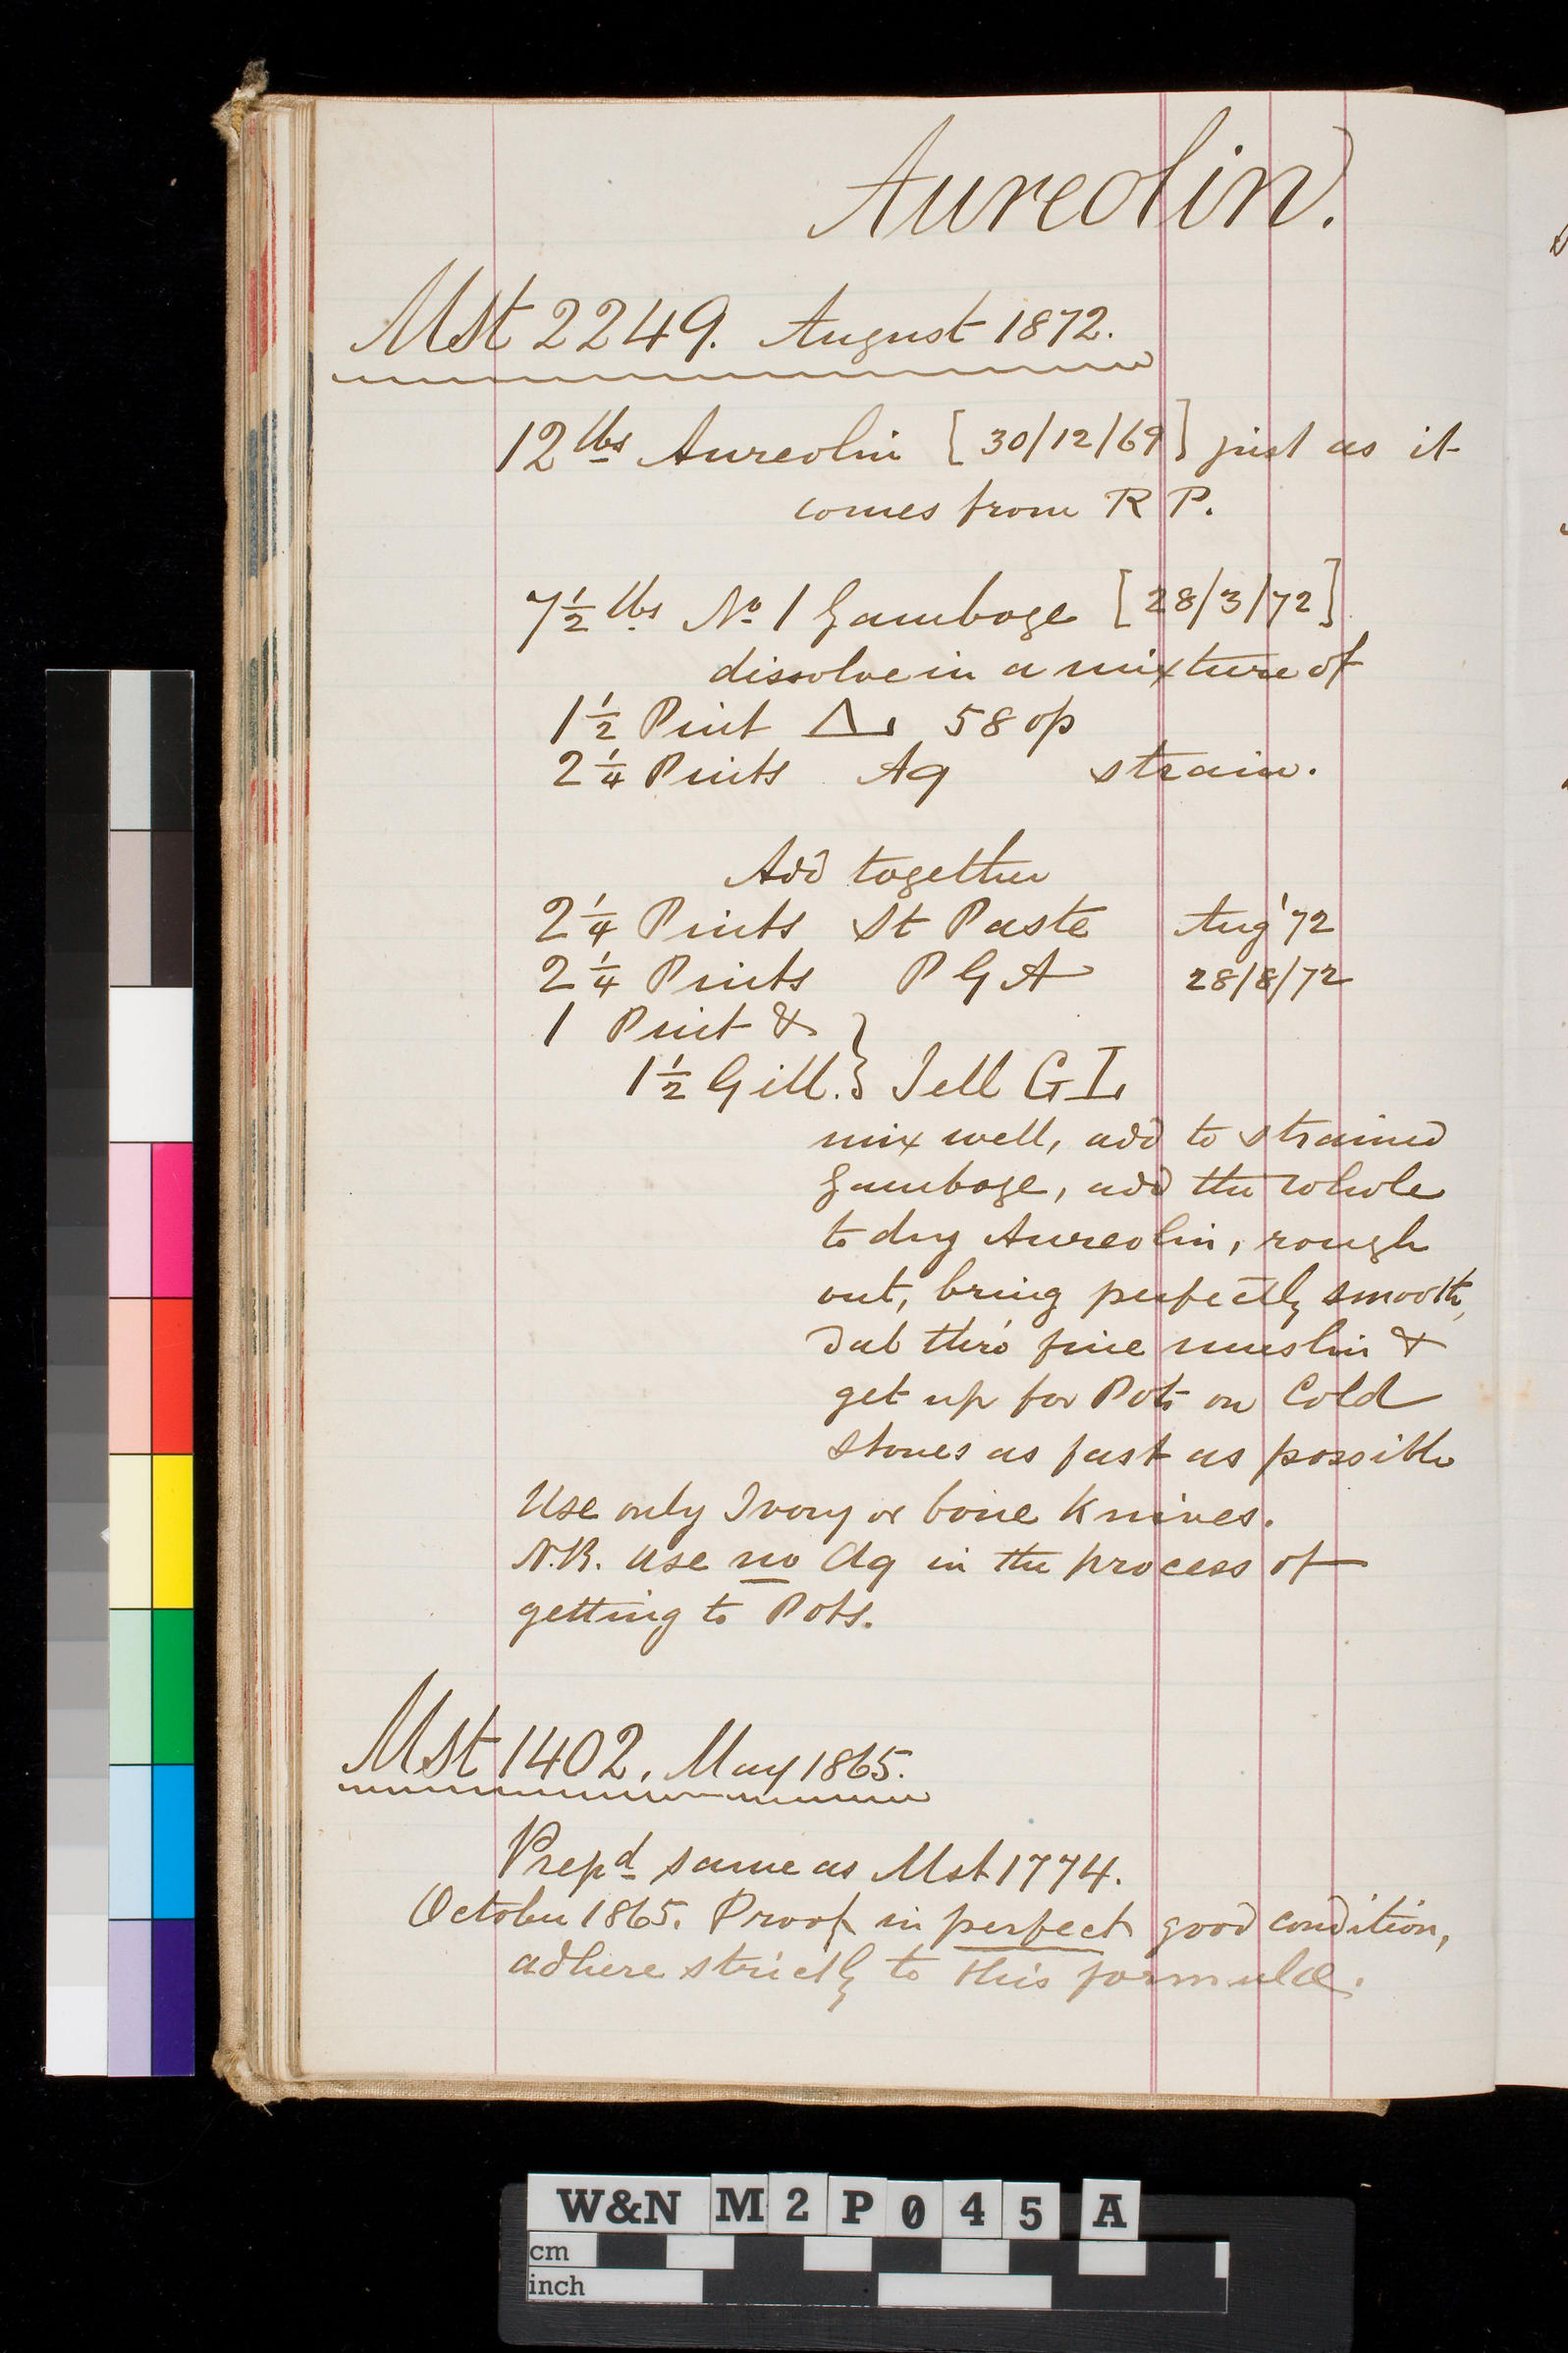 Aureolin.
Mst 2249. August 1872.
12 lbs Aureolin [30/12/69] just as it
comes from R P.
7 1/2 lbs No 1 Gamboge [28/3/72]
dissolve in a mixture of
1 1/2 Pint 58 op
2 1/4 Pints Aq strain.
Add together
2 1/4 Pints St Paste Aug '72
2 1/4 Pints P G A 28/8/72
1 Pint & }
1 1/2 Gill. } Jell G I
mix well, add to strained
Gamboge, add the whole
to dry Aureolin, rough
out, bring perfectly smooth,
dab thro' fine muslin &
get up for Pots on Cold
Stones as fast as possible
Use only Ivory or bone Knives.
N.B. use no Aq in the process of
getting to Pots.
Mst 1402. May 1865.
Prepd same as Mst 1774.
October 1865. Proof in perfect good condition,
adhere strictly to this formulæ.
W&N M2P045A
cm
inch